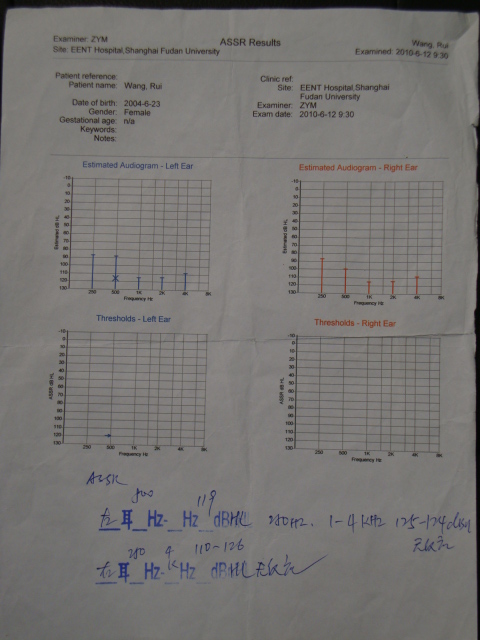 Examiner: ZYM
Site: EENT Hospital,Shanghai Fudan University
ASSR Results
Wang, Rui
Examined: 2010-6-12 9:30
Patient reference:
Patient name: Wang, Rui
Date of birth: 2004-6-23
Gender: Female
Gestational age: n/a
Keywords:
Notes:
Clinic ref
Site: EENT Hospital,Shanghai
Fudan University
Examiner: ZYM
Exam date: 2010-6-12 9:30
Estimated Audiogram - Left Ear
Estimated dB HL
-10
0
10
20
30
40
50
60
70
80
90
100
110
120
130
250 500 1K 2K 4K 8K
Frequency Hz
Estimated Audiogram - Right Ear
Estimated dB HL
-10
0
10
20
30
40
50
60
70
80
90
100
110
120
130
250 500 1K 2K 4K 8K
Frequency Hz
Thresholds - Left Ear
ASSR dB HL
-10
0
10
20
30
40
50
60
70
80
90
100
110
120
130
250 500 1K 2K 4K 8K
Frequency Hz
Thresholds - Right Ear
ASSR dB HL
-10
0
10
20
30
40
50
60
70
80
90
100
110
120
130
250 500 1K 2K 4K 8K
Frequency Hz
ASSR
左耳 500 Hz- Hz 119 dBHL 250Hz、1-4KHz 125-124dBHL
耳 250 Hz- 4K Hz 110-126 dBHL